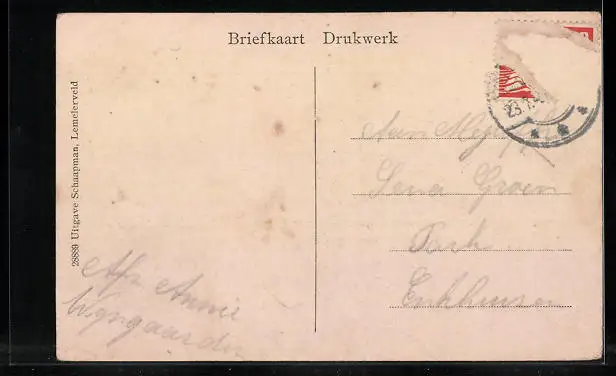 Briefkaart Drukwerk
28889 Uitgave Schaapman, Lemelerveld
23.7
Aan Mej
Lena Groen
Enkhuizen
Afz Annie
Wijngaarden